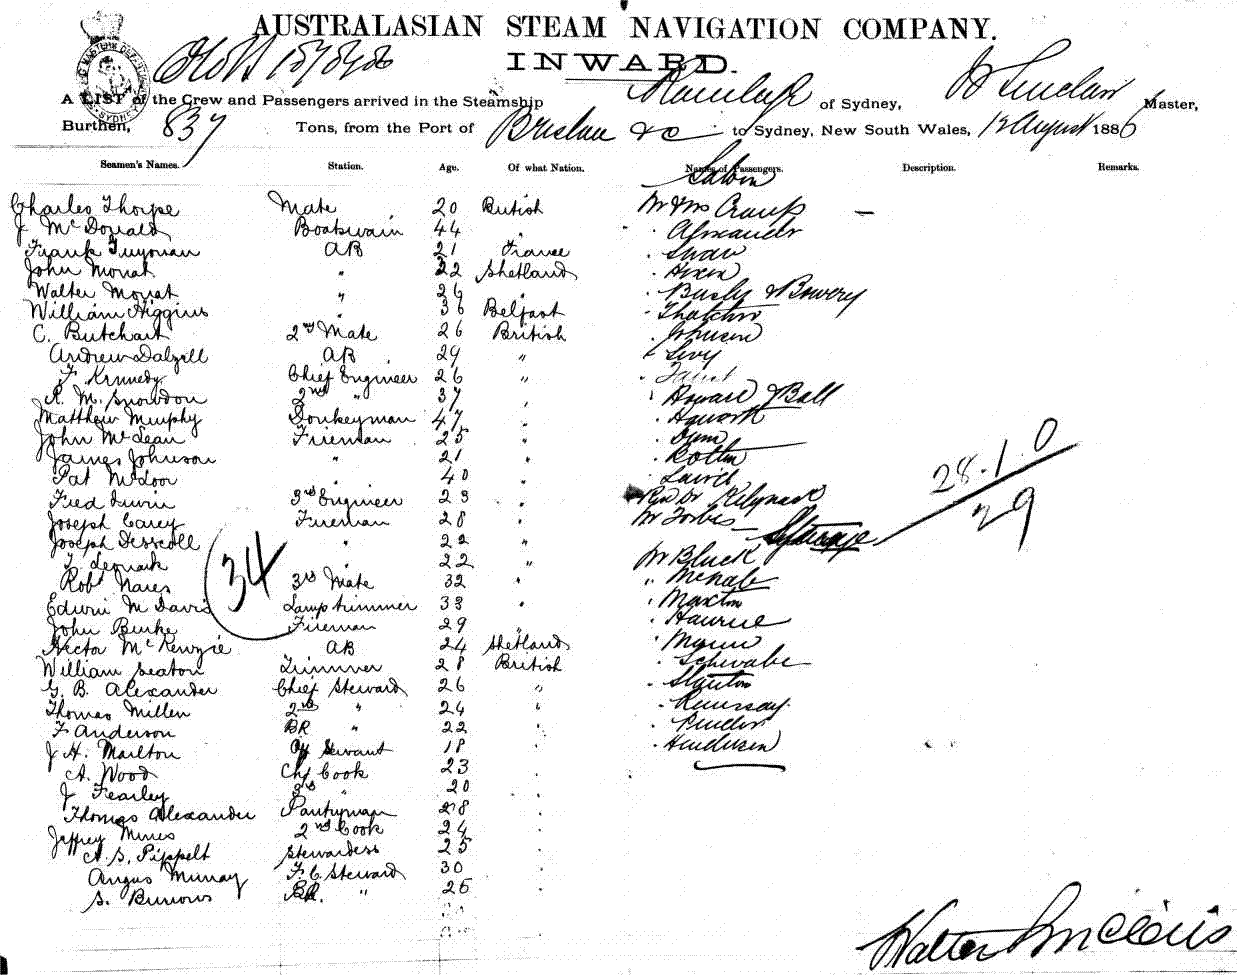 AUSTRALASIAN STEAM NAVIGATION COMPANY.
INWARD.
A LIST of the Crew and Passengers arrived in the Steamship Ranelagh of Sydney, W Sinclair Master,
Burthen, 837 Tons, from the Port of Brisbane &c to Sydney, New South Wales, 12 August 1886
Seamen's Names. Station. Age. Of what Nation. Names of Passengers. Description. Remarks.
Saloon
Charles Thorpe Mate 20 British Mr & Mrs
J McDonald Boatswain 44 " Alexander
Frank AB 21 France Shaw
John Mouat " 22 Shetland Hixon
Walter Mouat " 26 " Busby & Bowery
William Higgins " 36 Belfast Thatcher
C. Butchart 2nd Mate 26 British Johnson
Andrew Dalzell AB 29 " Levy
F Kennedy Chief Engineer 26 "
R. M. Snowdon 2nd " 37 " Howard & Ball
Matthew Murphy Donkeyman 47 " Haworth
John McLean Fireman 25 " Dunn
James Johnson " 21 "
Pat 40 " Laird
Fred Irwin 3rd Engineer 23 " Revd Dr
Joseph Carey Fireman 28 " Mr Forbes
Steerage
28.1.0
29
Joseph Desscoll " 22 " Mr Bluck
" 22 " " McNab
Robt Nares 3rd Mate 32 " Maxton
Edwin M Davis Lamp trimmer 33 "
John Burke Fireman 29 " Mann
Hector McKenzie AB 24 Shetland Schwabe
William Seaton Trimmer 28 British Stanton
G. B. Alexander Chief Steward 26 " Ramsay
Thomas Millen 2nd " 24 " Pinder
F Anderson BR " 22 " Henderson
J H. Marlton Off Servant 18
A. Wood Chf Cook 23
J Fearley 3rd " 20
Thomas Alexander Pantryman 28
Jeffrey Mines 2nd Cook 24
A. S. Pippelt Stewardess 25
Angus Murray F. C. Steward 30
S. Burrows BR. " 26
34
Walter